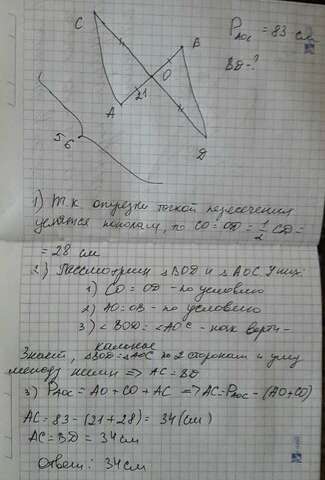 C
P AOC = 83 см
B
BD - ?
O
21
A
56
D
1) Т.к. отрезки точкой пересечения
делятся пополам, то CO = OD = 1/2 CD =
= 28 см
2) Рассмотрим △BOD и △AOC У них:
1) CO = OD - по условию
2) AO = OB - по условию
3) ∠BOD = ∠AOC - как верти-
кальные
Значит, △BOD = △AOC по 2 сторонам и углу
между ними ⇒ AC = BD
3) P AOC = AO + CO + AC ⇒ AC = P AOC - (AO + CO)
AC = 83 - (21 + 28) = 34 (см)
AC = BD = 34 см
Ответ: 34 см